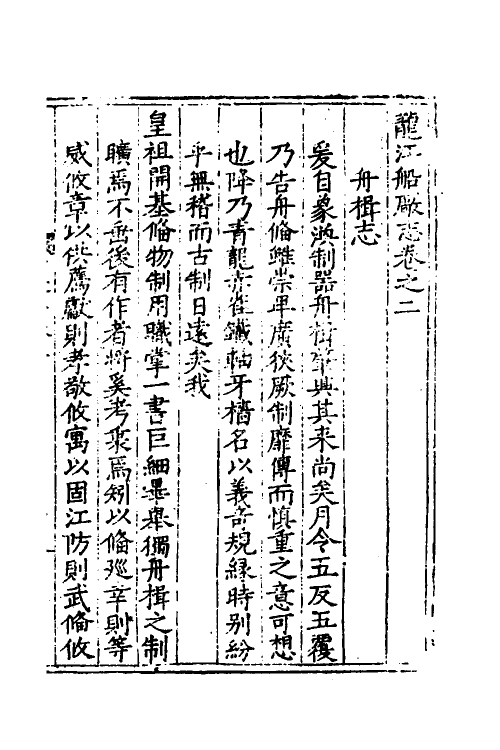 龍江船厰志卷之二
舟楫志
爰自象渙制器舟楫肇興其来尚矣月令五反五覆
乃告舟備雖崇卑廣狹厥制靡傳而慎重之意可想
也降乃青龍赤雀鐵軸牙檣名以義竒規緣時别紛
乎無稽而古制日遠矣我
皇祖開基僃物制用職掌一書巨細畢舉獨舟楫之制
曠焉不垂後有作者將奚考衷焉矧以僃廵幸則等
威攸章以供薦獻則孝敬攸寓以固江防則武僃攸